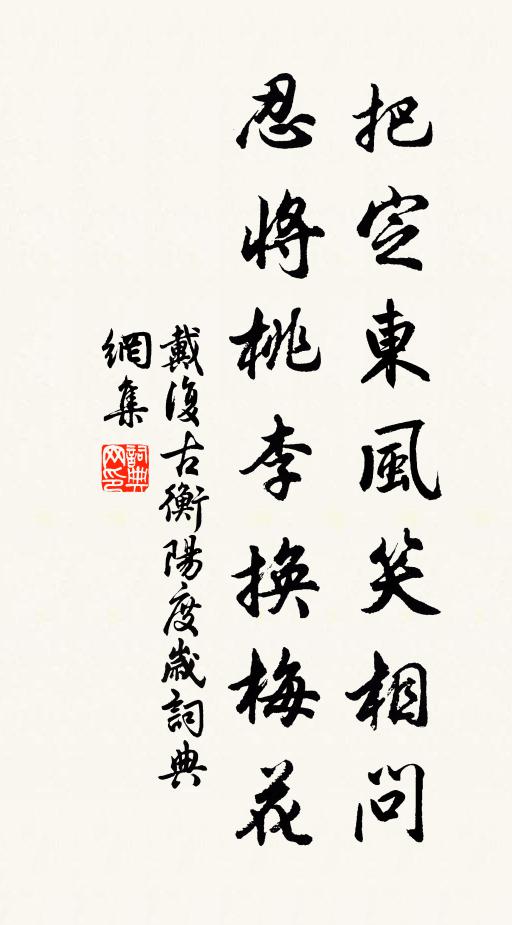 把定東風笑相問
忍將桃李換梅花
戴復古衡陽度歲詞典
網集
詞典
网印